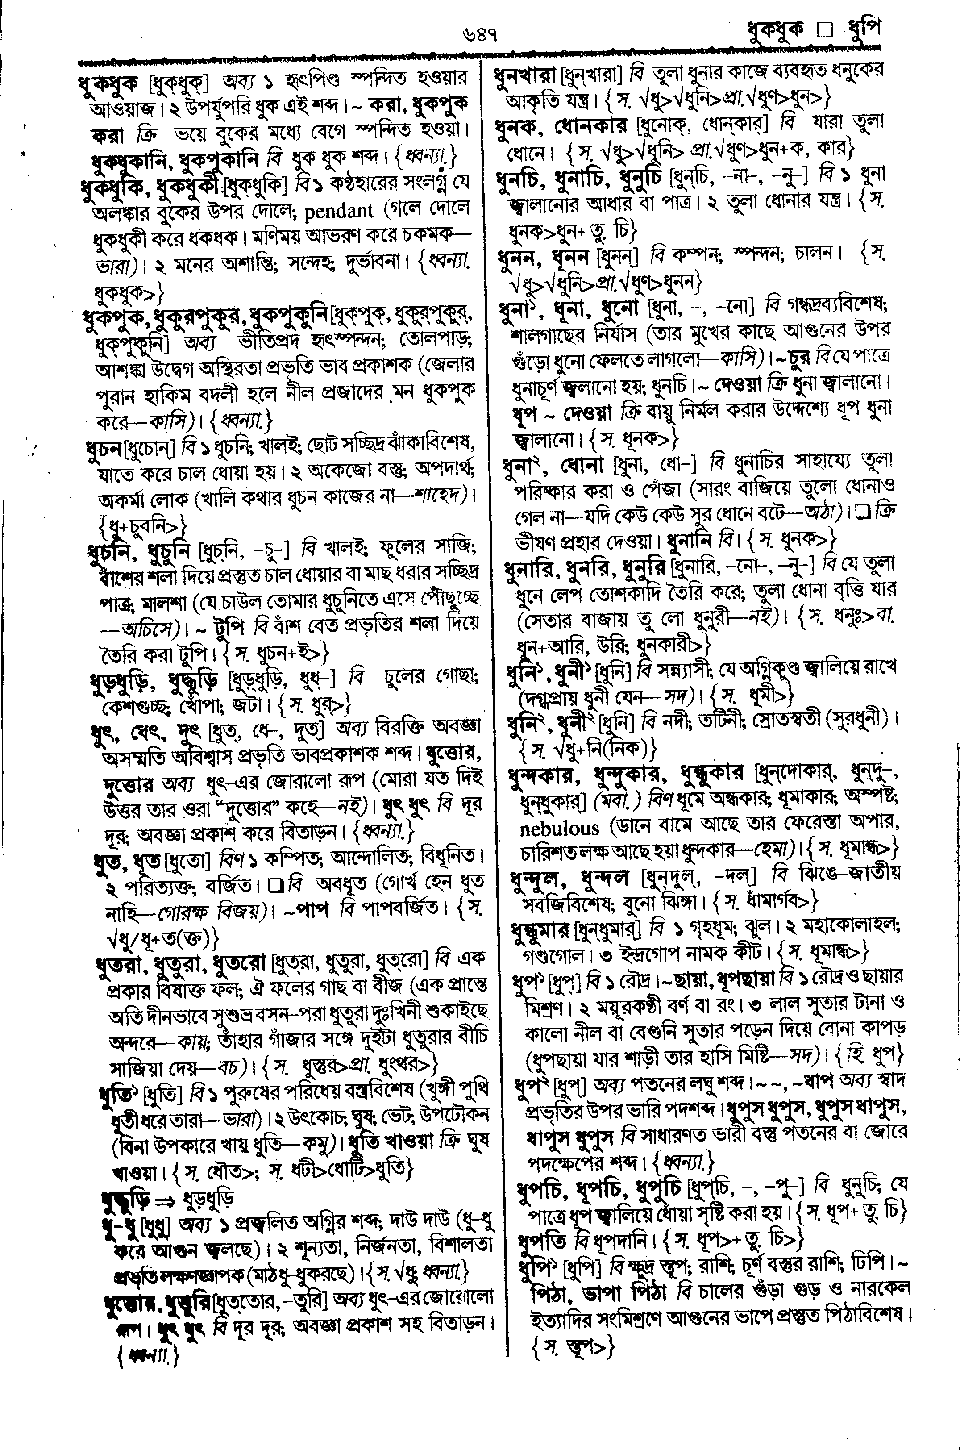 ৬৪৭
ধুকধুক □ ধুপি
ধুকধুক [ধুক্‌ধুক্] অব্য ১ হৃৎপিণ্ড স্পন্দিত হওয়ার
আওয়াজ। ২ উপর্যুপরি ধুক এই শব্দ। ~ করা, ধুকপুক
করা ক্রি ভয়ে বুকের মধ্যে বেগে স্পন্দিত হওয়া।
ধুকধুকানি, ধুকপুকানি বি ধুক ধুক শব্দ। {ধ্বন্যা.}
ধুকধুকি, ধুকধুকী [ধুক্‌ধুকি] বি ১ কণ্ঠহারের সংলগ্ন যে
অলঙ্কার বুকের উপর দোলে; pendant (গলে দোলে
ধুকধুকী করে ধকধক। মণিময় আভরণ করে চকমক—
ভারা)। ২ মনের অশান্তি; সন্দেহ; দুর্ভাবনা। {ধ্বন্যা.
ধুকধুক>}
ধুকপুক, ধুকুরপুকুর, ধুকপুকুনি [ধুক্‌পুক্, ধুকুর্‌পুকুর্,
ধুক্‌পুকুনি] অব্য ভীতিপ্রদ হৃৎস্পন্দন; তোলপাড়;
আশঙ্কা উদ্বেগ অস্থিরতা প্রভৃতি ভাব প্রকাশক (জেলার
পুরান হাকিম বদলী হলে নীল প্রজাদের মন ধুকপুক
করে—কাসি)। {ধ্বন্যা.}
ধুচন [ধুচোন্] বি ১ ধুচনি; খালই; ছোট সচ্ছিদ্র ঝাঁকাবিশেষ,
যাতে করে চাল ধোয়া হয়। ২ অকেজো বস্তু; অপদার্থ;
অকর্মা লোক (খালি কথার ধুচন কাজের না—শাহেদ)।
{ধু+চুবনি>}
ধুচনি, ধুচুনি [ধুচ্‌নি, -চু-] বি খালই; ফুলের সাজি;
বাঁশের শলা দিয়ে প্রস্তুত চাল ধোয়ার বা মাছ ধরার সচ্ছিদ্র
পাত্র; মালশা (যে চাউল তোমার ধুচুনিতে এসে পৌঁছুচ্ছে
—অচিসে)। ~ টুপি বি বাঁশ বেত প্রভৃতির শলা দিয়ে
তৈরি করা টুপি। {স. ধুচন+ই>}
ধুড়ধুড়ি, ধুদ্ধুড়ি [ধুড়্‌ধুড়ি, ধুধ্-] বি চুলের গোছা;
কেশগুচ্ছ; খোঁপা; জটা। {স. ধুর>}
ধুৎ, ধেৎ, দুৎ [ধুত্, ধে-, দুত্] অব্য বিরক্তি অবজ্ঞা
অসম্মতি অবিশ্বাস প্রভৃতি ভাবপ্রকাশক শব্দ। ধুত্তোর,
দুত্তোর অব্য ধুৎ-এর জোরালো রূপ (মোরা যত দিই
উত্তর তার ওরা “দুত্তোর” কহে—নই)। ধুৎ ধুৎ বি দূর
দূর; অবজ্ঞা প্রকাশ করে বিতাড়ন। {ধ্বন্যা.}
ধুত, ধূত [ধুতো] বিণ ১ কম্পিত; আন্দোলিত; বিধূনিত।
২ পরিত্যক্ত; বর্জিত। □ বি অবধূত (গোর্খ হেন ধুত
নাহি—গোরক্ষ বিজয়)। ~পাপ বি পাপবর্জিত। {স.
√ধু/ধূ+ত(ক্ত)}
ধুতরা, ধুতুরা, ধুতরো [ধুত্‌রা, ধুতুরা, ধুত্‌রো] বি এক
প্রকার বিষাক্ত ফল; ঐ ফলের গাছ বা বীজ (এক প্রান্তে
অতি দীনভাবে সুশুভ্রবসন-পরা ধুতুরা দুঃখিনী শুকাইছে
অন্দরে—কায়; তাঁহার গাঁজার সঙ্গে দুইটা ধুতুরার বীচি
সাজিয়া দেয়—বচ)। {স. ধুস্তুর>প্রা. ধুৎথর>}
ধুতি১ [ধুতি] বি ১ পুরুষের পরিধেয় বস্ত্রবিশেষ (খুঙ্গী পুথি
ধুতী ধরে তারা—ভারা)। ২ উৎকোচ; ঘুষ; ভেট; উপঢৌকন
(বিনা উপকারে খায় ধুতি—কমু)। ধুতি খাওয়া ক্রি ঘুষ
খাওয়া। {স. ধৌত>; স. ধটী>ধোটি>ধুতি}
ধুদ্ধুড়ি ⇒ ধুড়ধুড়ি
ধু-ধু [ধুধু] অব্য ১ প্রজ্বলিত অগ্নির শব্দ; দাউ দাউ (ধু-ধু
করে আগুন জ্বলছে)। ২ শূন্যতা, নির্জনতা, বিশালতা
প্রভৃতি লক্ষণজ্ঞাপক (মাঠ ধু-ধু করছে)। {স. √ধু ধ্বন্যা.}
ধুত্তোর, ধুত্তুরি [ধুত্‌তোর্, -তুরি] অব্য ধুৎ-এর জোরালো
রূপ। ধুৎ ধুৎ বি দূর দূর; অবজ্ঞা প্রকাশ সহ বিতাড়ন।
{ধ্বন্যা.}
ধুনখারা [ধুন্‌খারা] বি তূলা ধুনার কাজে ব্যবহৃত ধনুকের
আকৃতি যন্ত্র। {স. √ধু>√ধুনি>প্রা.√ধুণ>ধুন>}
ধুনক, ধোনকার [ধুনোক্, ধোন্‌কার্] বি যারা তুলা
ধোনে। {স. √ধু>√ধুনি> প্রা.√ধুণ>ধুন+ক, কার}
ধুনচি, ধুনাচি, ধুনুচি [ধুন্‌চি, -না-, -নু-] বি ১ ধুনা
জ্বালানোর আধার বা পাত্র। ২ তুলা ধোনার যন্ত্র। {স.
ধুনক>ধুন+ তু. চি}
ধুনন, ধূনন [ধুনন্] বি কম্পন; স্পন্দন; চালন। {স.
√ধু>√ধুনি>প্রা.√ধুণ>ধুনন}
ধুনা১, ধূনা, ধুনো [ধুনা, -, -নো] বি গন্ধদ্রব্যবিশেষ;
শালগাছের নির্যাস (তার মুখের কাছে আগুনের উপর
গুঁড়ো ধুনো ফেলতে লাগলো—কাসি)। ~চুর বি যে পাত্রে
ধুনাচূর্ণ জ্বলানো হয়; ধুনচি। ~ দেওয়া ক্রি ধুনা জ্বালানো।
ধূপ ~ দেওয়া ক্রি বায়ু নির্মল করার উদ্দেশ্যে ধূপ ধুনা
জ্বালানো। {স. ধূনক>}
ধুনা২, ধোনা [ধুনা, ধো-] বি ধুনাচির সাহায্যে তুলা
পরিষ্কার করা ও পেঁজা (সারং বাজিয়ে তুলো ধোনাও
গেল না—যদি কেউ কেউ সুর ধোনে বটে—অঠা)। □ ক্রি
ভীষণ প্রহার দেওয়া। ধুনানি বি। {স. ধুনক>}
ধুনারি, ধুনরি, ধুনুরি [ধুনারি, -নো-, -নু-] বি যে তূলা
ধুনে লেপ তোশকাদি তৈরি করে; তুলা ধোনা বৃত্তি যার
(সেতার বাজায় তু লো ধুনুরী—নই)। {স. ধনুঃ>বা.
ধুন+আরি, উরি; ধুনকারী>}
ধুনি১, ধুনী১ [ধুনি] বি সন্ন্যাসী; যে অগ্নিকুণ্ড জ্বালিয়ে রাখে
(দগ্ধপ্রায় ধুনী যেন—সদ)। {স. ধূমী>}
ধুনি২, ধুনী২ [ধুনি] বি নদী; তটিনী; স্রোতস্বতী (সুরধুনী)।
{স. √ধু+নি(নিক)}
ধুন্দকার, ধুন্দুকার, ধুন্ধুকার [ধুন্‌দোকার্, ধুন্‌দু-,
ধুন্‌ধুকার্] (মবা.) বিণ ধূমে অন্ধকার; ধূমাকার; অস্পষ্ট;
nebulous (ডানে বামে আছে তার ফেরেস্তা অপার,
চারিশত লক্ষ আছে হয়া ধুন্দকার—হেমা)। {স. ধূমান্ধ>}
ধুন্দুল, ধুন্দল [ধুন্‌দুল্, -দল্] বি ঝিঙে-জাতীয়
সবজিবিশেষ; বুনো ঝিঙ্গা। {স. ধামার্গব>}
ধুন্ধুমার [ধুন্‌ধুমার্] বি ১ গৃহধূম; ঝুল। ২ মহাকোলাহল;
গণ্ডগোল। ৩ ইন্দ্রগোপ নামক কীট। {স. ধূমান্ধ>}
ধুপ১ [ধুপ্] বি ১ রৌদ্র। ~ছায়া, ধূপছায়া বি ১ রৌদ্র ও ছায়ার
মিশ্রণ। ২ ময়ূরকণ্ঠী বর্ণ বা রং। ৩ লাল সুতার টানা ও
কালো নীল বা বেগুনি সুতার পড়েন দিয়ে বোনা কাপড়
(ধুপছায়া যার শাড়ী তার হাসি মিষ্টি—সদ)। {হি. ধুপ}
ধুপ২ [ধুপ্] অব্য পতনের লঘু শব্দ। ~~, ~ধাপ অব্য স্বাদ
প্রভৃতির উপর ভারি পদশব্দ। ধুপুস ধুপুস, ধুপুস ধাপুস,
ধাপুস ধুপুস বি সাধারণত ভারী বস্তু পতনের বা জোরে
পদক্ষেপের শব্দ। {ধ্বন্যা.}
ধুপচি, ধূপচি, ধুপুচি [ধুপ্‌চি, -, -পু-] বি ধুনুচি; যে
পাত্রে ধূপ জ্বালিয়ে ধোঁয়া সৃষ্টি করা হয়। {স. ধূপ+ তু. চি}
ধুপতি বি ধূপদানি। {স. ধূপ>+ তু. চি>}
ধুপি১ [ধুপি] বি ক্ষুদ্র স্তূপ; রাশি; চূর্ণ বস্তুর রাশি; ঢিপি। ~
পিঠা, ভাপা পিঠা বি চালের গুঁড়া গুড় ও নারকেল
ইত্যাদির সংমিশ্রণে আগুনের ভাপে প্রস্তুত পিঠাবিশেষ।
{স. স্তূপ>}